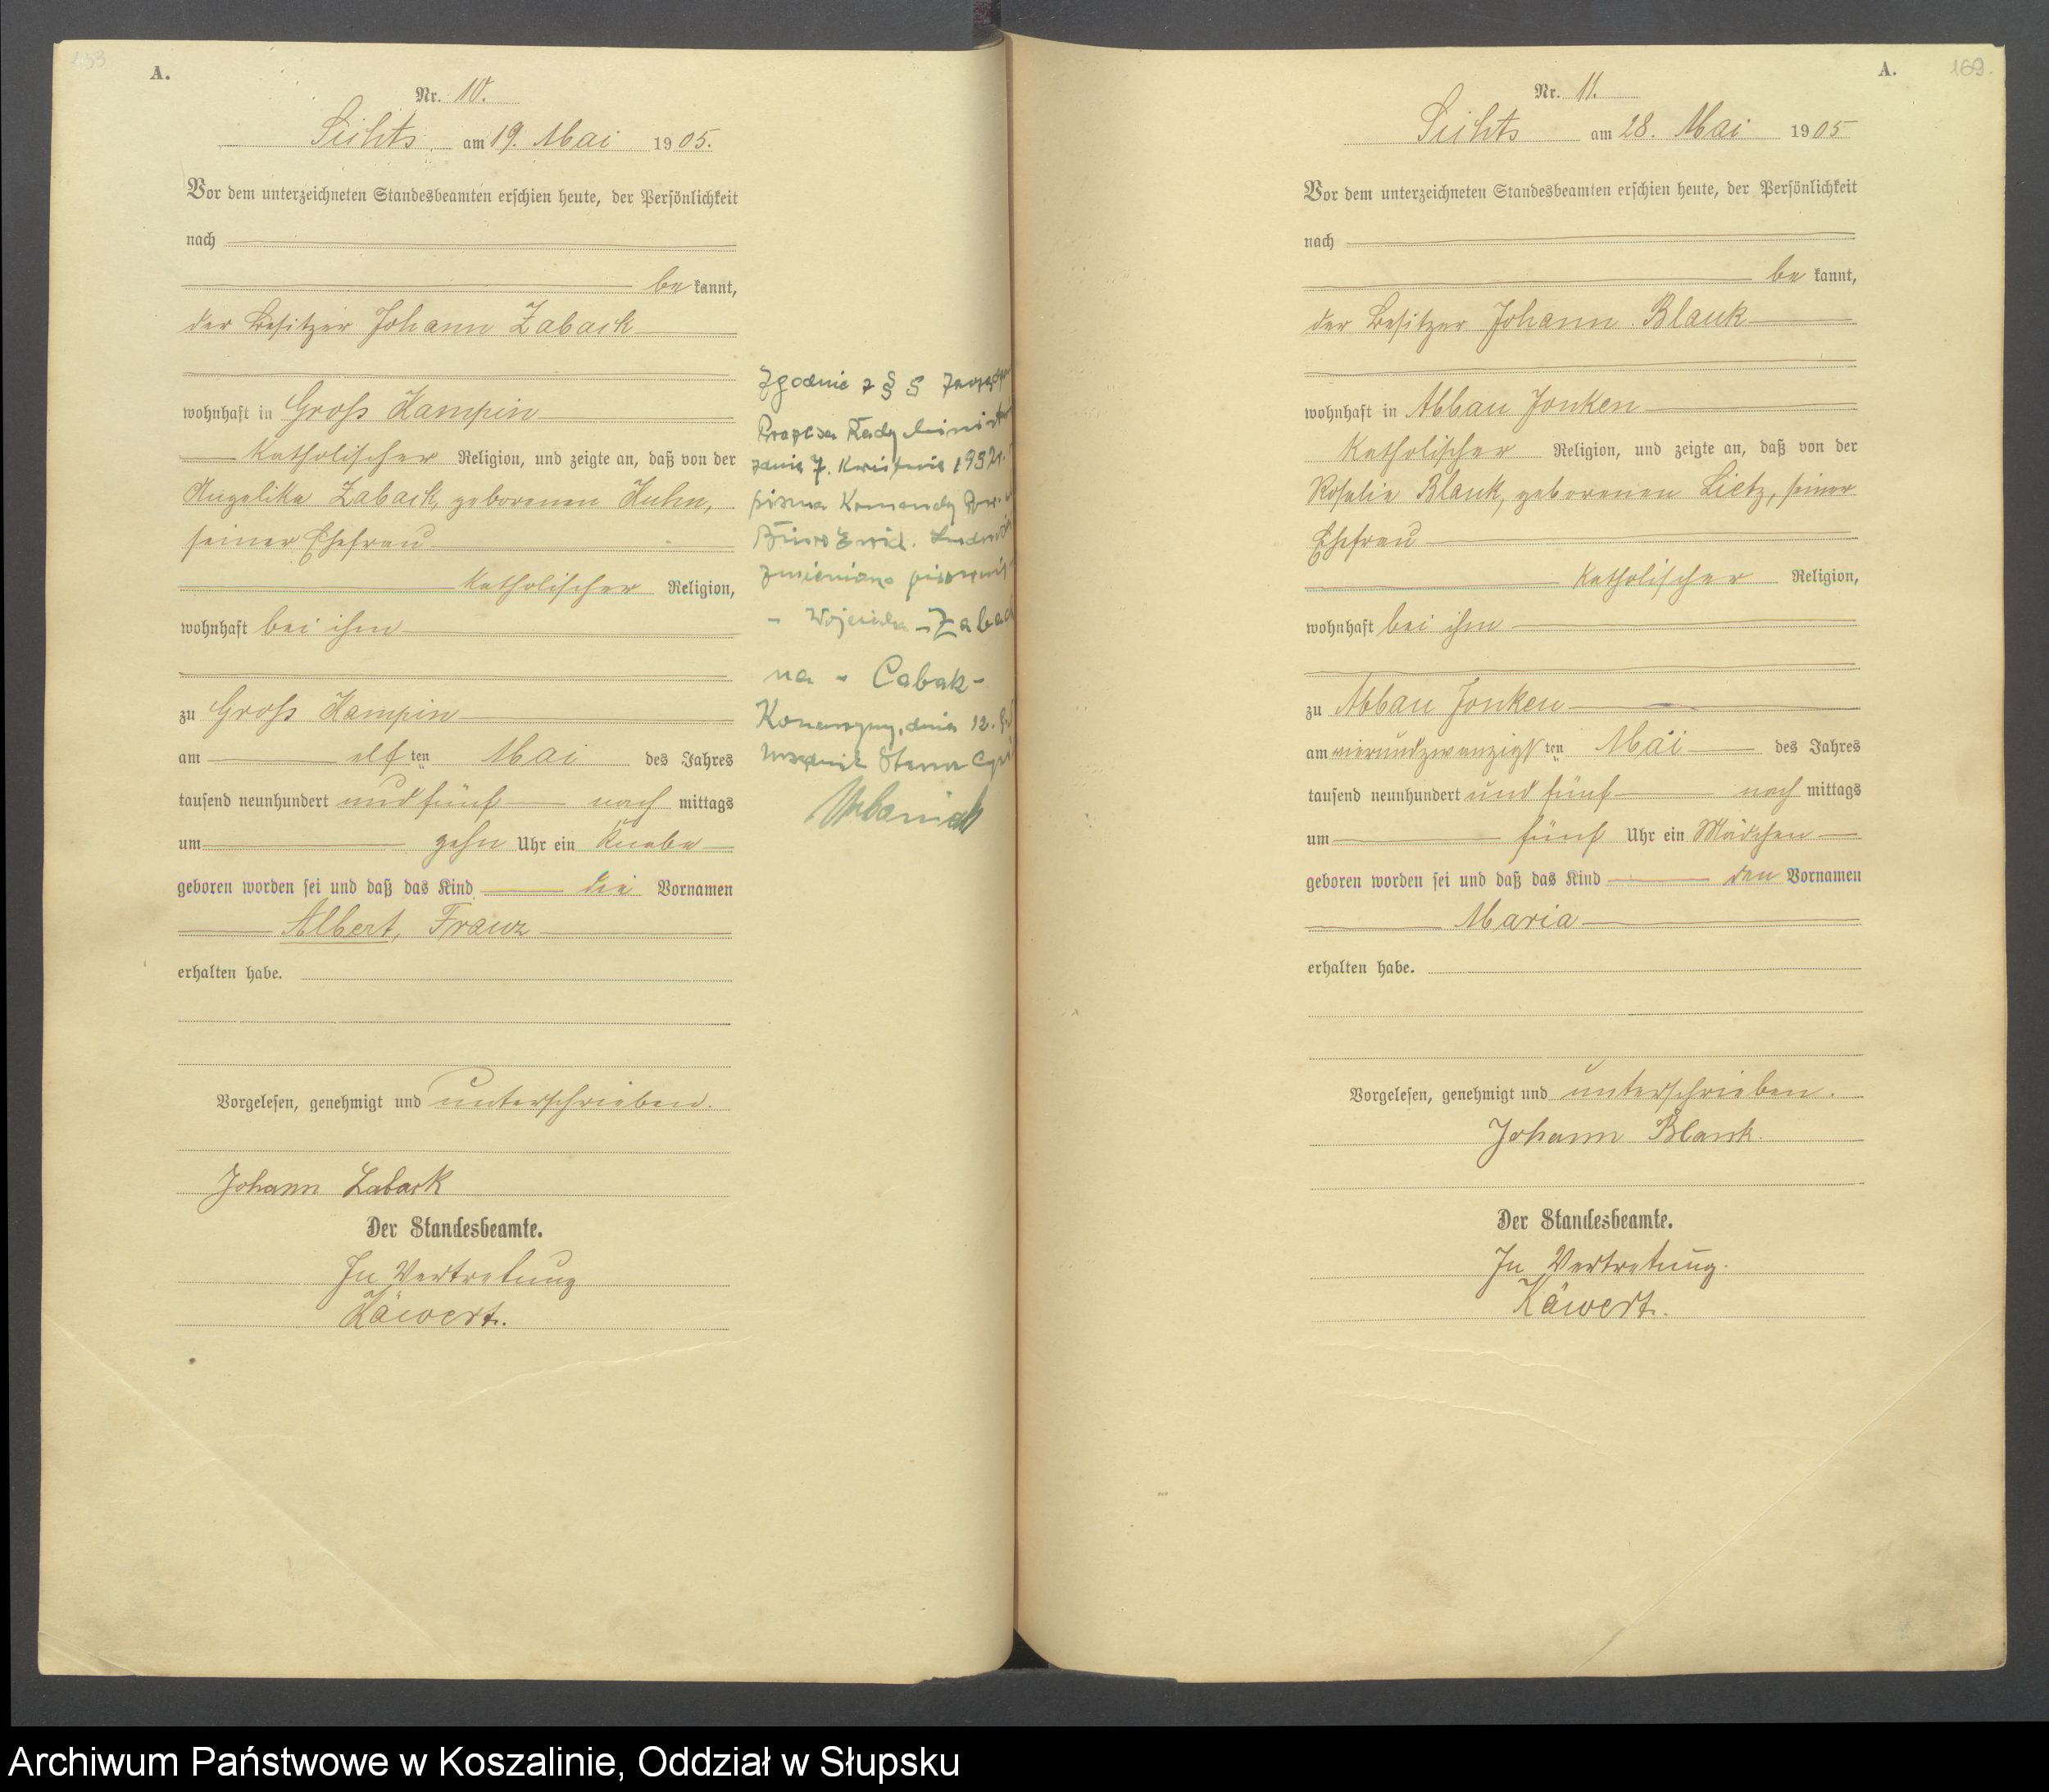 153
A.
Nr. 10.
Sichts, am 19. Mai 1905.
Vor dem unterzeichneten Standesbeamten erschien heute, der Persönlichkeit
nach
be kannt,
der Besitzer Johann Zaback
wohnhaft in Groß Kampin
katholischer Religion, und zeigte an, daß von der
Angelika Zaback, geborenen Kuhn,
seiner Ehefrau
katholischer Religion,
wohnhaft bei ihm
zu Groß Kampin
am elf ten Mai des Jahres
tausend neunhundert und fünf nach mittags
um zehn Uhr ein Knabe
geboren worden sei und daß das Kind die Vornamen
Albert, Franz
erhalten habe.
Vorgelesen, genehmigt und unterschrieben.
Johann Zaback
Der Standesbeamte.
In Vertretung
Käwert.
Zgodnie z § §
Prezesa Rady
dnia 7. kwietnia 1952 r.
pisma Komendy
Biuro
zmieniono
na - Cabak -
dnia 12.
Urzędnik Stanu
Urbaniak
169.
A.
Nr. 11.
Sichts am 28. Mai 1905
Vor dem unterzeichneten Standesbeamten erschien heute, der Persönlichkeit
nach
be kannt,
der Besitzer Johann Blank
wohnhaft in Abbau Jonken
katholischer Religion, und zeigte an, daß von der
Rosalie Blank, geborenen Lietz, seiner
Ehefrau
katholischer Religion,
wohnhaft bei ihm
zu Abbau Jonken
am vierundzwanzigs ten Mai des Jahres
tausend neunhundert und fünf nach mittags
um fünf Uhr ein Mädchen
geboren worden sei und daß das Kind den Vornamen
Maria
erhalten habe.
Vorgelesen, genehmigt und unterschrieben.
Johann Blank.
Der Standesbeamte.
In Vertretung.
Käwert.
Archiwum Państwowe w Koszalinie, Oddział w Słupsku